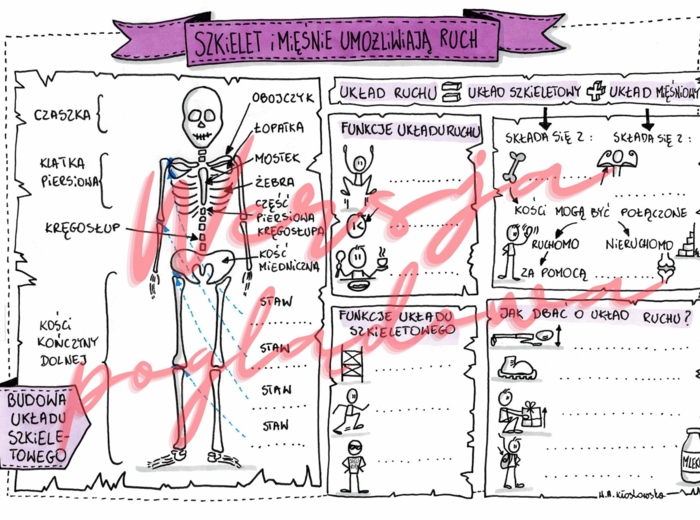 SZKIELET i MIĘŚNIE UMOŻLIWIAJĄ RUCH
CZASZKA
KLATKA
PIERSIOWA
KRĘGOSŁUP
KOŚCI
KOŃCZYNY
DOLNEJ
BUDOWA
UKŁADU
SZKIELE-
TOWEGO
OBOJCZYK
ŁOPATKA
MOSTEK
ŻEBRA
CZĘŚĆ
PIERSIOWA
KRĘGOSŁUPA
KOŚĆ
MIEDNICZNA
STAW
STAW
STAW
STAW
UKŁAD RUCHU = UKŁAD SZKIELETOWY + UKŁAD MIĘŚNIOWY
FUNKCJE UKŁADU RUCHU
FUNKCJE UKŁADU
SZKIELETOWEGO
SKŁADA SIĘ Z: SKŁADA SIĘ Z:
KOŚCI MOGĄ BYĆ POŁĄCZONE
RUCHOMO NIERUCHOMO
ZA POMOCĄ
JAK DBAĆ O UKŁAD RUCHU?
MLEKO
Wersja
poglądowa